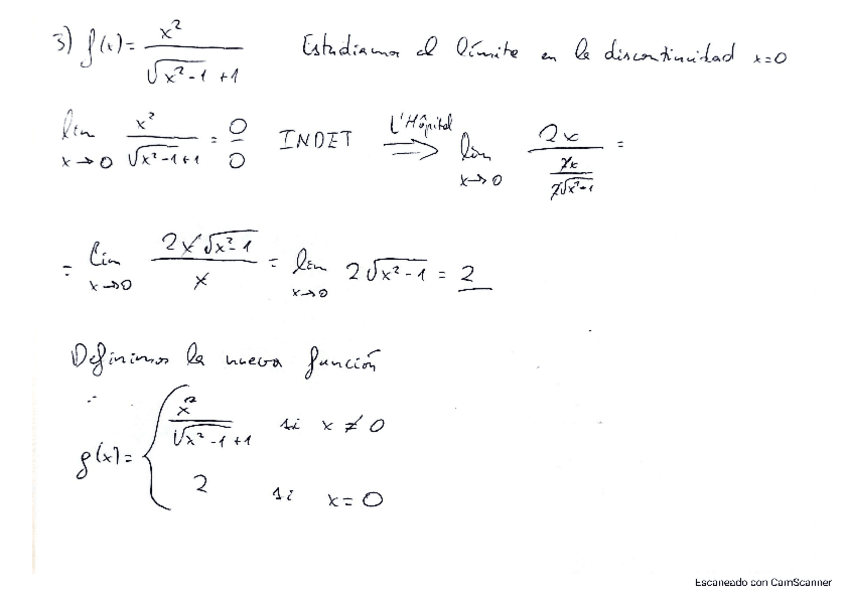 3) f(x) = x² / √(x²-1 +1) Estudiamos el límite en la discontinuidad x=0
lim x→0 x² / (√(x²-1)+1) = 0/0 INDET L'Hôpital ⟹ lim x→0 2x / (2x / 2√(x²-1)) =
= lim x→0 2x√(x²-1) / x = lim x→0 2√(x²-1) = 2
Definimos la nueva función
g(x) = { x² / (√(x²-1)+1) si x ≠ 0
2 si x = 0
Escaneado con CamScanner